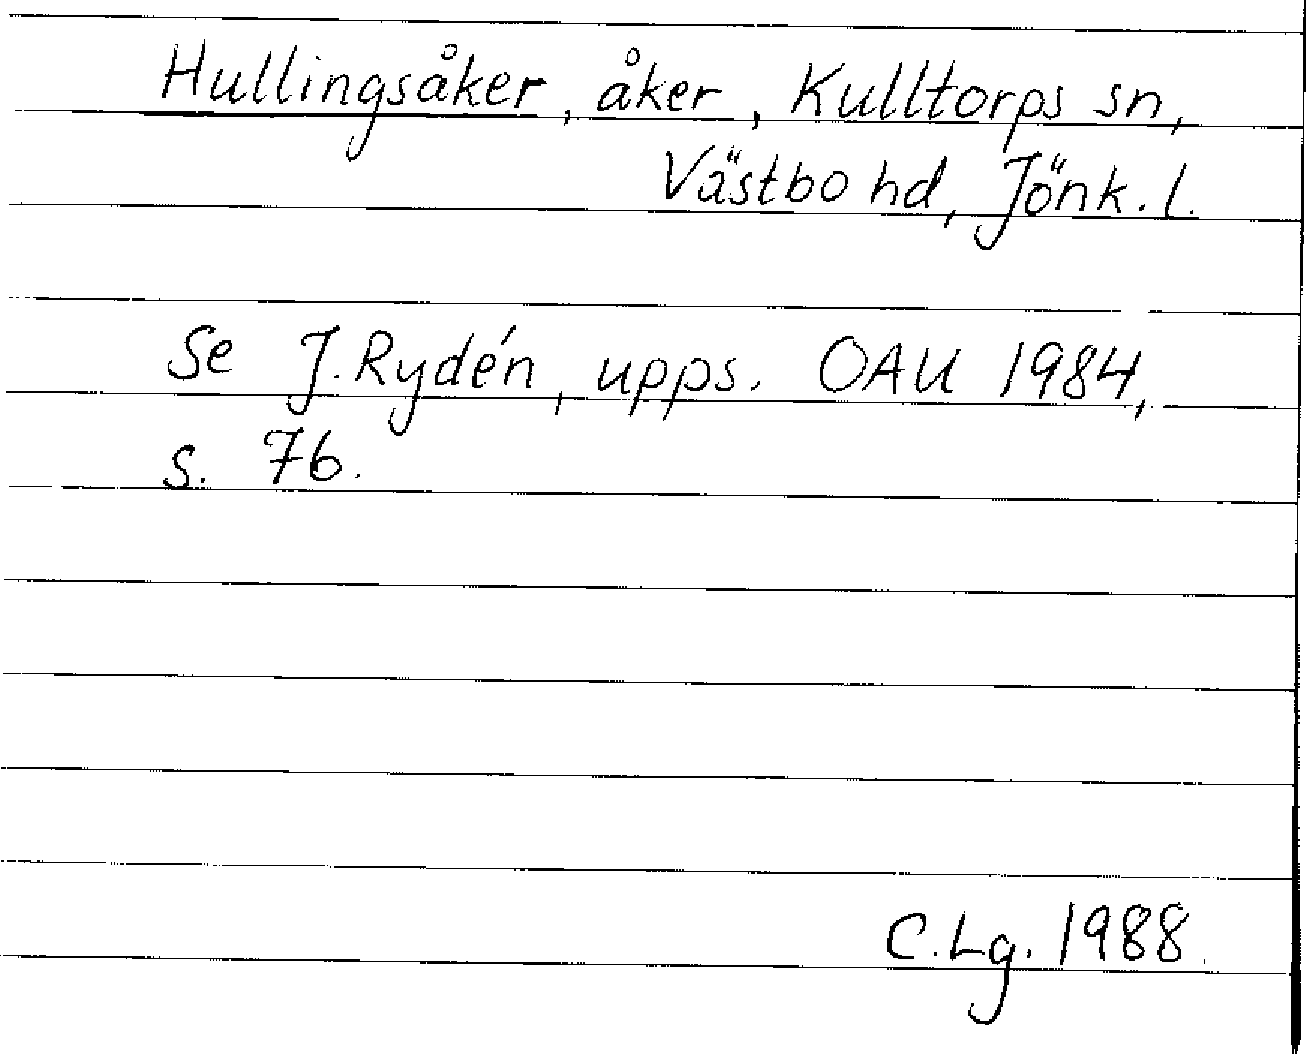 Hullingsåker, åker, Kulltorps sn,
Västbo hd, Jönk. l.
Se J. Rydén, upps. OAU 1984,
s. 76.
C. Lg. 1988.